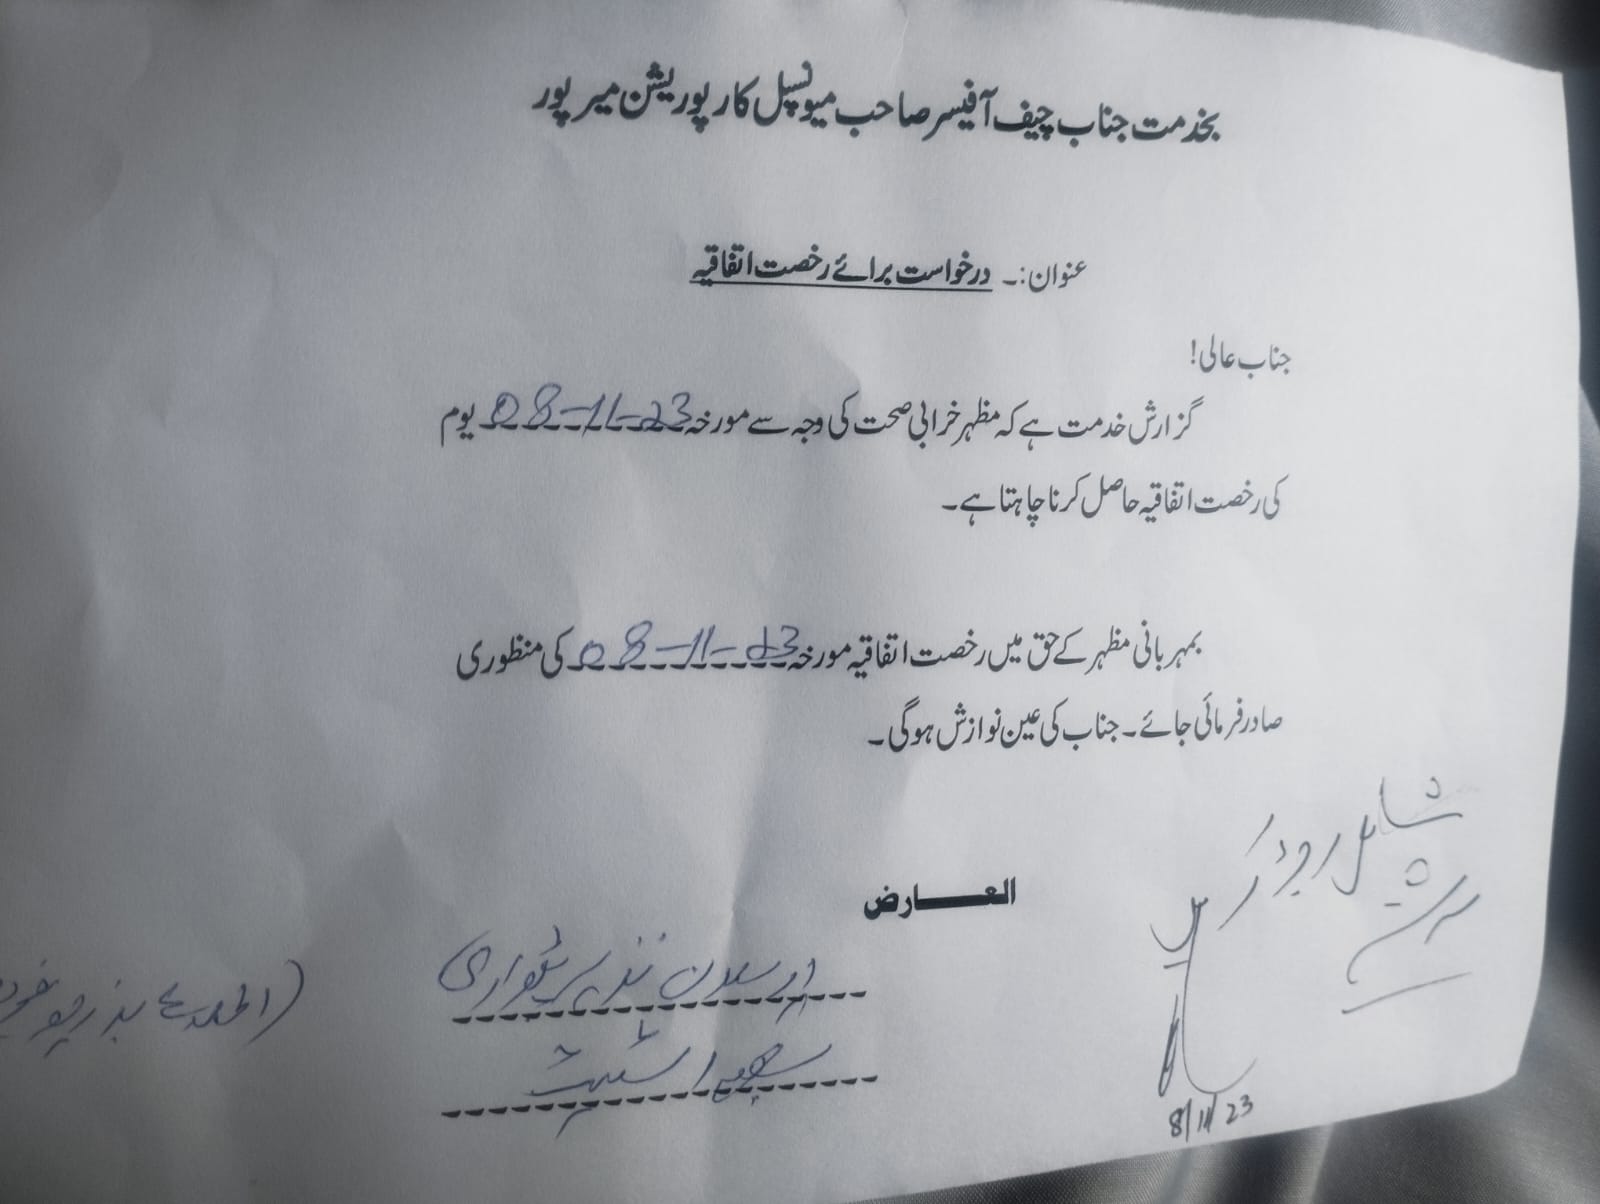 بخدمت جناب چیف آفیسر صاحب میونسپل کارپوریشن میرپور
عنوان:۔ درخواست برائے رخصت اتفاقیہ
جناب عالی!
گزارش خدمت ہے کہ مظہر خرابی صحت کی وجہ سے مورخہ 08-11-23 یوم
کی رخصت اتفاقیہ حاصل کرنا چاہتا ہے۔
بمہربانی مظہر کے حق میں رخصت اتفاقیہ مورخہ 08-11-23 کی منظوری
صادر فرمائی جائے۔ جناب کی عین نوازش ہوگی۔
العارض
ارسلان نذیر پٹواری
شامل ریکارڈ
8/11/23